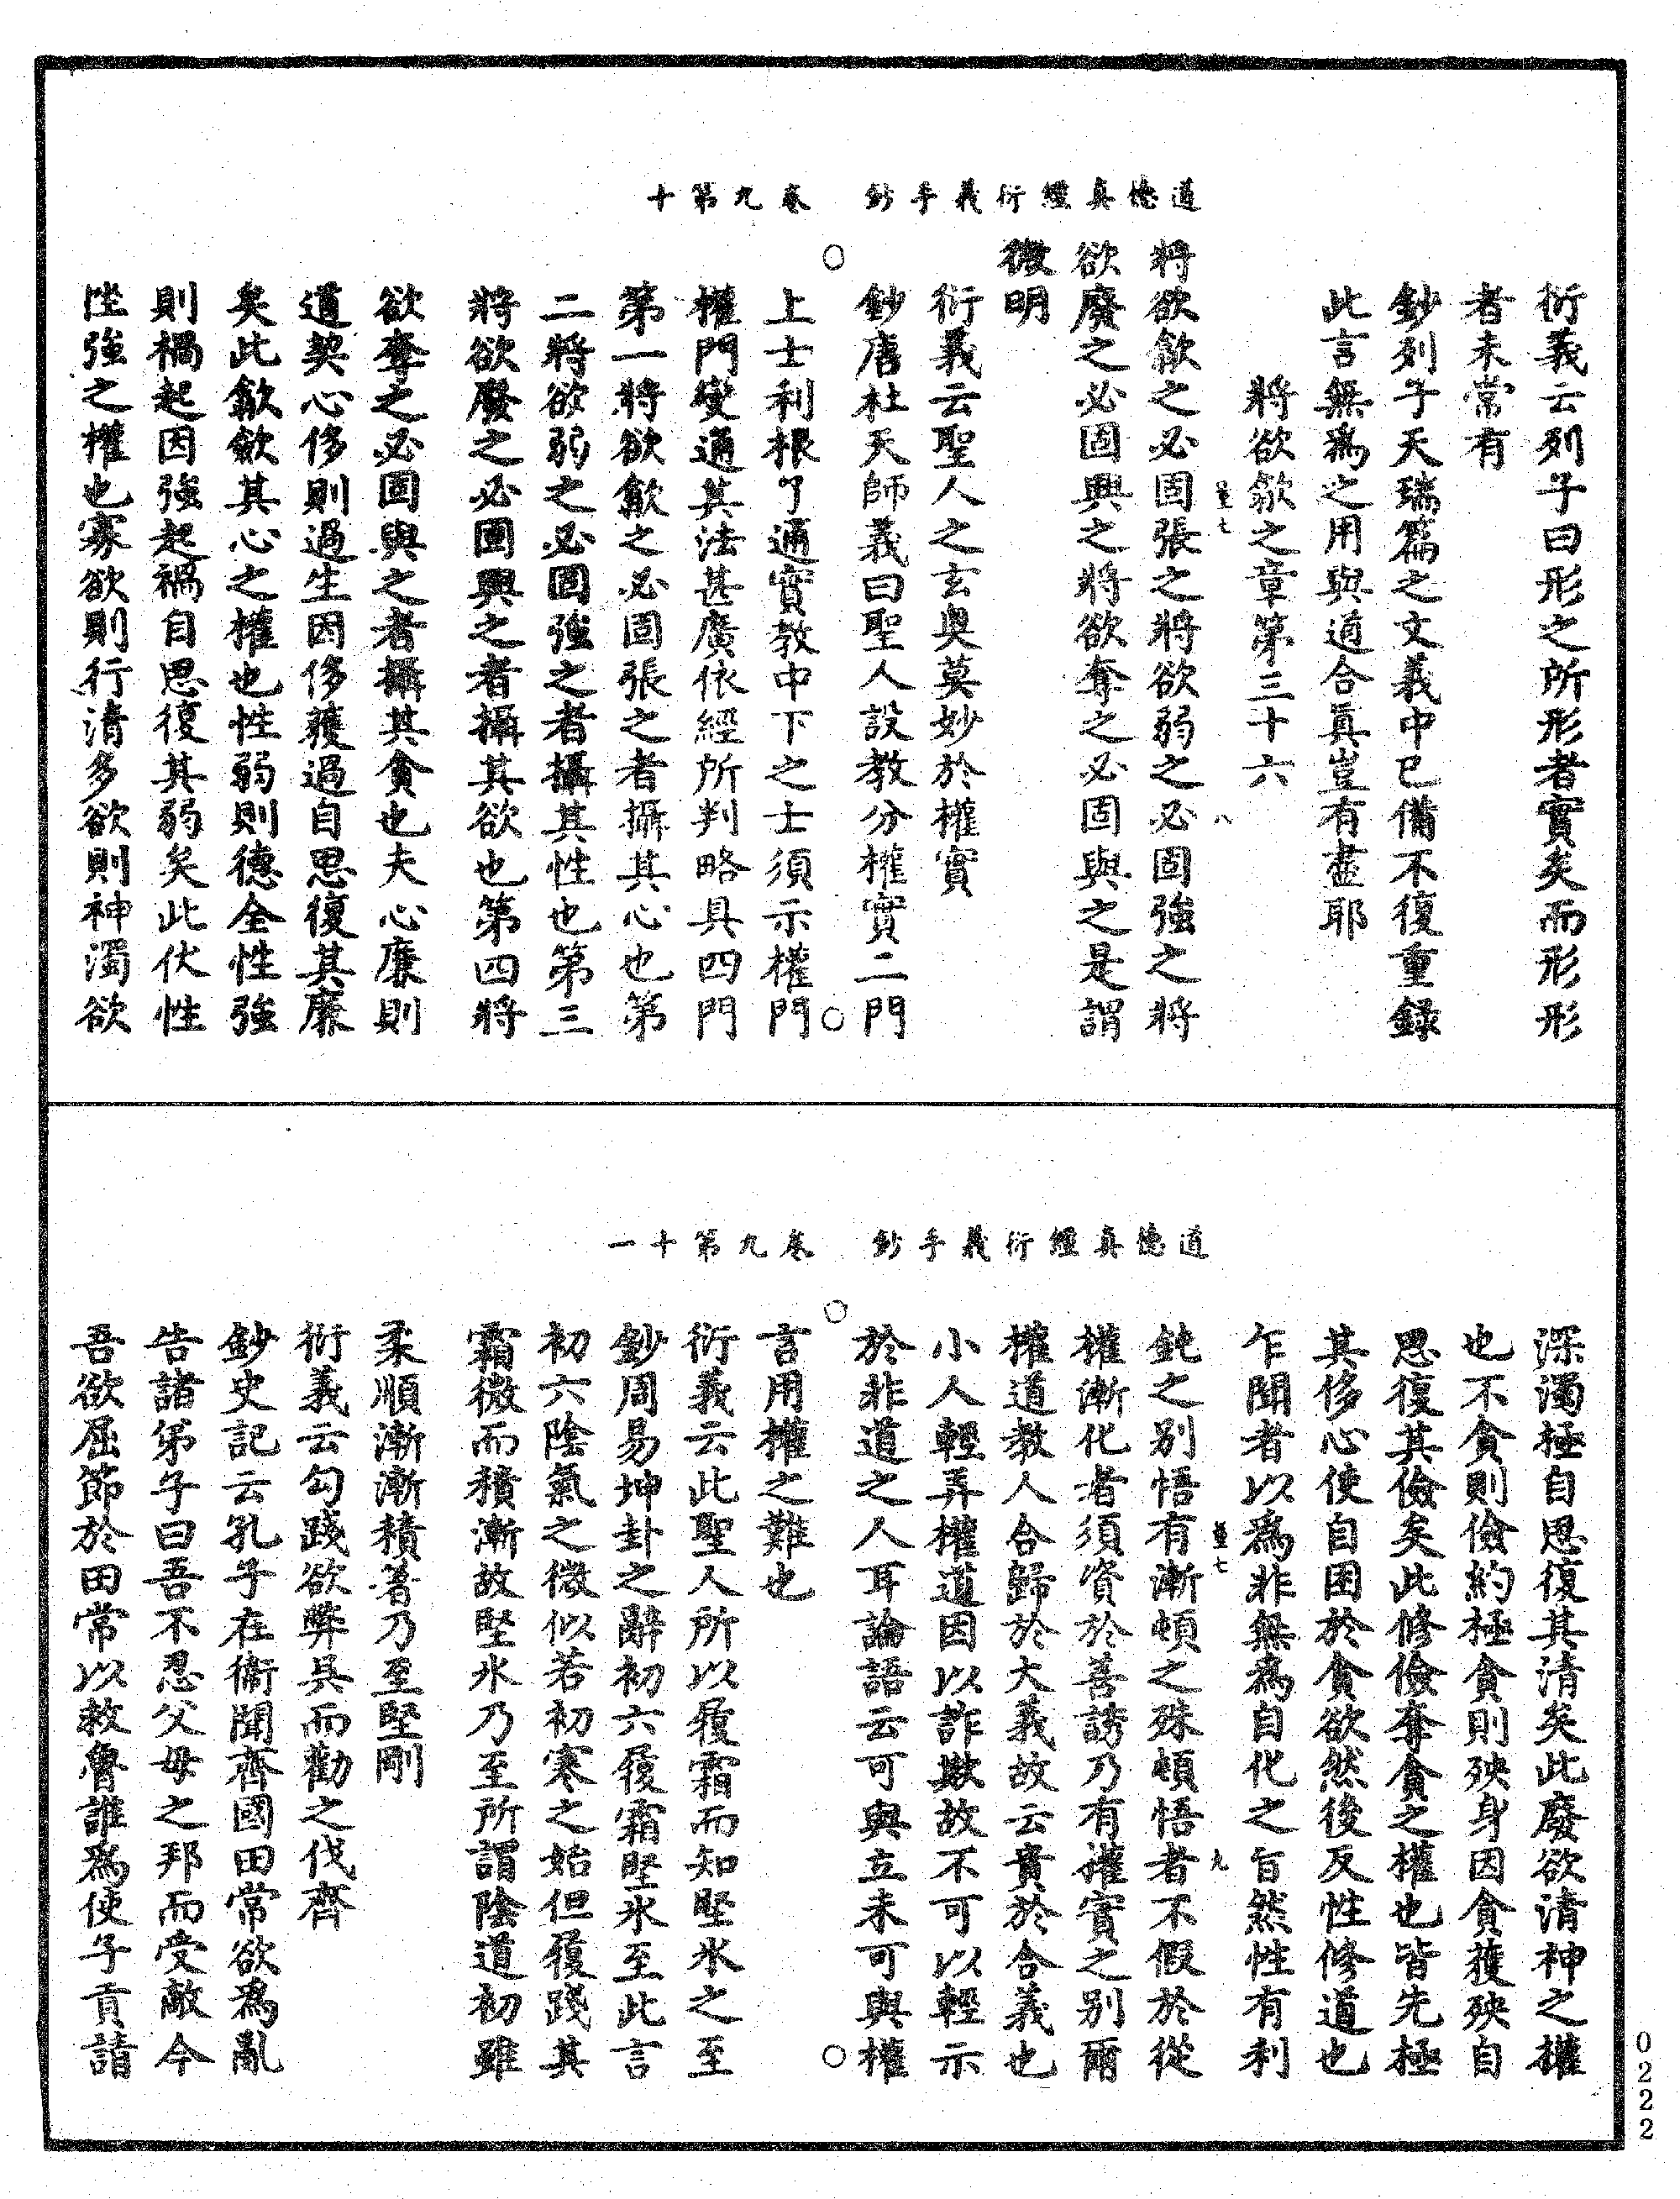 道德真經衍義手鈔　卷九第十
衍義云列子曰形之所形者實矣而形形
者未常有
鈔列子天瑞篇之文義中已備不復重録
此言無爲之用與道合眞豈有盡耶
將欲歙之章第三十六
八
將欲歙之必固張之將欲弱之必固強之將
欲廢之必固興之將欲奪之必固與之是謂
微明
衍義云聖人之玄奥莫妙於權實
鈔唐杜天師義曰聖人設教分權實二門
上士利根了通實教中下之士須示權門
權門變通其法甚廣依經所判略具四門
第一將欲歙之必固張之者攝其心也第
二將欲弱之必固強之者攝其性也第三
將欲廢之必固興之者攝其欲也第四將
欲奪之必固與之者攝其貪也夫心廉則
道契心侈則過生因侈獲過自思復其廉
矣此歙歛其心之權也性弱則德全性強
則禍起因強起禍自思復其弱矣此伏性
性強之權也寡欲則行清多欲則神濁欲
道德真經衍義手鈔　卷九第十一
深濁極自思復其清矣此廢欲清神之權
也不貪則儉約極貪則殃身因貪獲殃自
思復其儉矣此修儉奪貪之權也皆先極
其侈心使自困於貪欲然後反性修道也
乍聞者以爲非無爲自化之旨然性有利
九
鈍之別悟有漸頓之殊頓悟者不假於從
權漸化者須資於善誘乃有權實之別爾
權道教人合歸於大義故云貴於合義也
小人輕弄權道因以詐欺故不可以輕示
於非道之人耳論語云可與立未可與權
言用權之難也
衍義云此聖人所以履霜而知堅氷之至
鈔周易坤卦之辭初六履霜堅氷至此言
初六陰氣之微似若初寒之始但履踐其
霜微而積漸故堅氷乃至所謂陰道初雖
柔順漸漸積著乃至堅剛
衍義云勾踐欲弊吳而勸之伐齊
鈔史記云孔子在衞聞齊國田常欲爲亂
告諸弟子曰吾不忍父母之邦而受敵今
吾欲屈節於田常以救魯誰爲使子貢請
0222